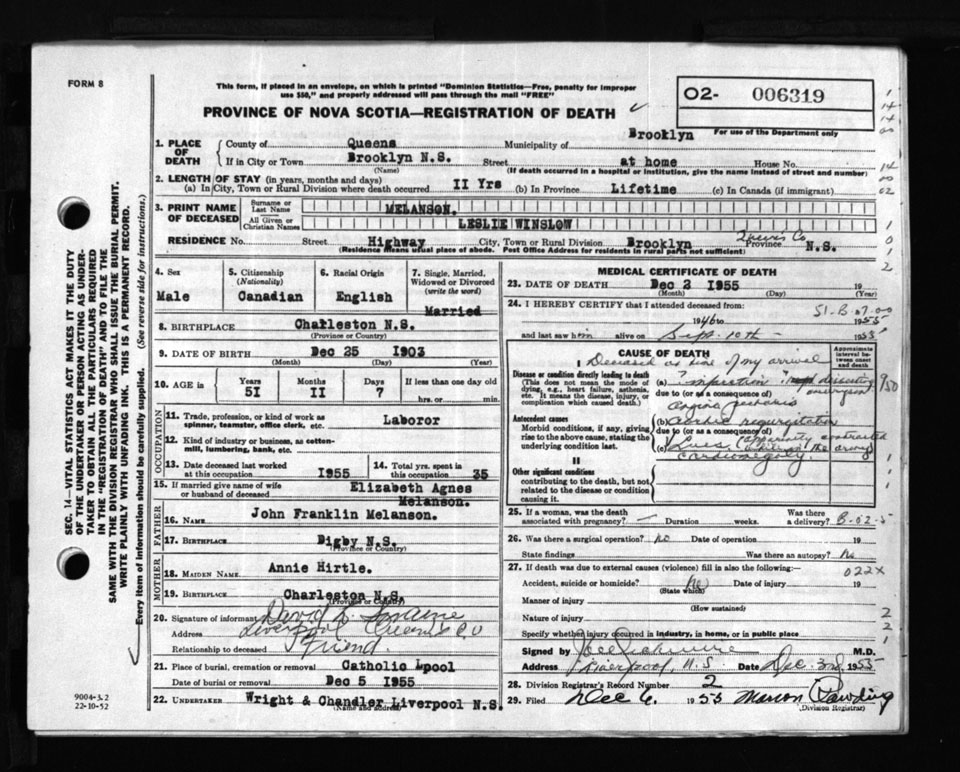 FORM 8
This form, if placed in an envelope, on which is printed "Dominion Statistics—Free, penalty for improper
use $50," and properly addressed will pass through the mail "FREE"
PROVINCE OF NOVA SCOTIA—REGISTRATION OF DEATH
02- 006319
For use of the Department only
1. PLACE OF DEATH
County of Queens Municipality of Brooklyn
If in City or Town Brooklyn N.S. Street at home House No.
(Name) (If death occurred in a hospital or institution, give name instead of street and number)
2. LENGTH OF STAY (in years, months and days)
(a) In City, Town or Rural Division where death occurred II Yrs (b) In Province Lifetime (c) In Canada (if immigrant)
3. PRINT NAME OF DECEASED
Surname or Last Name MELANSON.
All Given or Christian Names LESLIE WINSLOW
RESIDENCE No. Street Highway City, Town or Rural Division Brooklyn Queens Co Province N.S.
(Residence means usual place of abode. Post Office Address for residents in rural parts not sufficient)
4. Sex 5. Citizenship (Nationality) 6. Racial Origin 7. Single, Married, Widowed or Divorced (write the word)
Male Canadian English Married
8. BIRTHPLACE Charleston N.S.
(Province or Country)
9. DATE OF BIRTH Dec 25 1903
(Month) (Day) (Year)
10. AGE in Years Months Days If less than one day old
5I II 7 hrs. or min.
OCCUPATION
11. Trade, profession, or kind of work as
spinner, teamster, office clerk, etc. Laboror
12. Kind of industry or business, as cotton-
mill, lumbering, bank, etc.
13. Date deceased last worked
at this occupation 1955
14. Total yrs. spent in
this occupation 35
15. If married give name of wife
or husband of deceased Elizabeth Agnes Melanson.
FATHER
16. NAME John Franklin Melanson.
17. BIRTHPLACE Digby N.S.
(Province or Country)
MOTHER
18. MAIDEN NAME Annie Hirtle.
19. BIRTHPLACE Charleston N.S.
(Province or Country)
20. Signature of informant David L.
Address Liverpool Queens Co
Relationship to deceased Friend.
21. Place of burial, cremation or removal Catholic Lpool
Date of burial or removal Dec 5 1955
22. UNDERTAKER Wright & Chandler Liverpool N.S.
(Name and address)
MEDICAL CERTIFICATE OF DEATH
23. DATE OF DEATH Dec 2 I955 19
(Month) (Day) (Year)
24. I HEREBY CERTIFY that I attended deceased from:
1946 to 1955
and last saw him alive on Sept. 10th 1955
CAUSE OF DEATH
Approximate interval between onset and death
I Deceased on my arrival
Disease or condition directly leading to death
(This does not mean the mode of
dying, e.g., heart failure, asthenia,
etc. It means the disease, injury, or
complication which caused death.)
(a) dissecting aneurysm
due to (or as a consequence of)
Angina pectoris
Antecedent causes
Morbid conditions, if any, giving
rise to the above cause, stating the
underlying condition last.
(b) Aortic regurgitation
due to (or as a consequence of)
(c) Lues (apparently contracted
II
Other significant conditions
contributing to the death, but not
related to the disease or condition
causing it.
cardiomegaly
25. If a woman, was the death
associated with pregnancy? — Duration weeks. Was there a delivery? B-02-5
26. Was there a surgical operation? no Date of operation 19
State findings Was there an autopsy? No
27. If death was due to external causes (violence) fill in also the following:— 022X
Accident, suicide or homicide? No Date of injury 19
(State which)
Manner of injury
(How sustained)
Nature of injury
Specify whether injury occurred in industry, in home, or in public place
Signed by M.D.
Address Liverpool, N.S. Date Dec. 3rd 1955
28. Division Registrar's Record Number 2
29. Filed Dec 6. 1955 Marion
(Division Registrar)
SEC. 14—VITAL STATISTICS ACT MAKES IT THE DUTY
OF THE UNDERTAKER OR PERSON ACTING AS UNDER-
TAKER TO OBTAIN ALL THE PARTICULARS REQUIRED
IN THE "REGISTRATION OF DEATH" AND TO FILE THE
SAME WITH THE DIVISION REGISTRAR WHO SHALL ISSUE THE BURIAL PERMIT.
WRITE PLAINLY WITH UNFADING INK. THIS IS A PERMANENT RECORD.
Every item of information should be carefully supplied. (See reverse side for instructions.)
9004-3.2
22-10-52